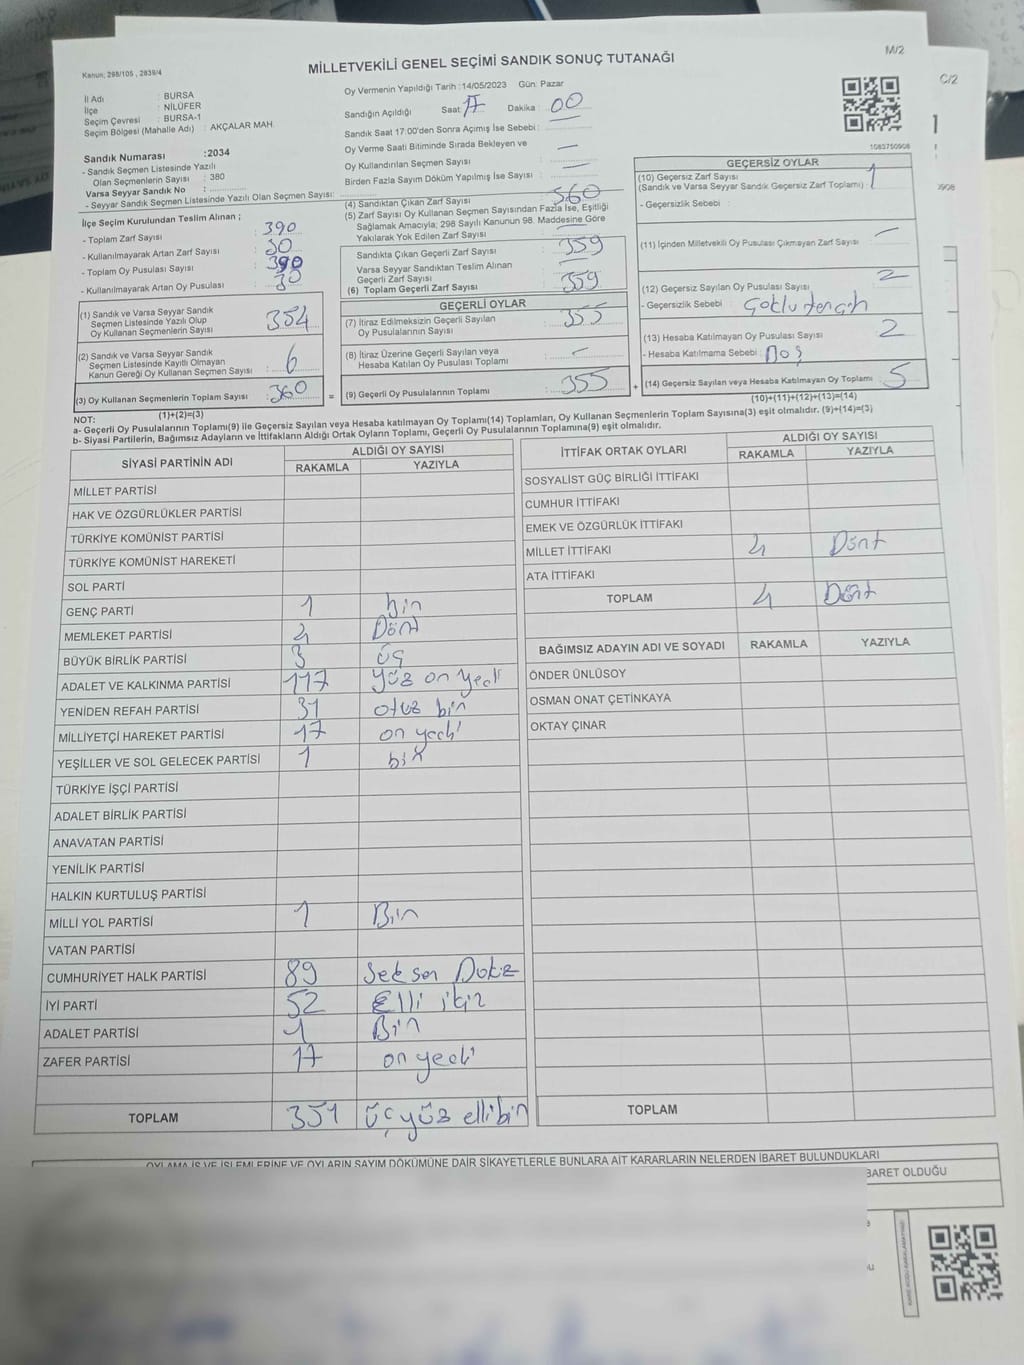 M/2
Kanun, 298/105 , 2839/4
MİLLETVEKİLİ GENEL SEÇİMİ SANDIK SONUÇ TUTANAĞI
C/2
İl Adı : BURSA
İlçe : NİLÜFER
Seçim Çevresi : BURSA-1
Seçim Bölgesi (Mahalle Adı) : AKÇALAR MAH.
Sandık Numarası :2034
- Sandık Seçmen Listesinde Yazılı
Olan Seçmenlerin Sayısı : 380
Varsa Seyyar Sandık No :
- Seyyar Sandık Seçmen Listesinde Yazılı Olan Seçmen Sayısı:
Oy Vermenin Yapıldığı Tarih :14/05/2023 Gün: Pazar
Sandığın Açıldığı Saat: 17 Dakika : 00
Sandık Saat 17:00'den Sonra Açımış İse Sebebi :
Oy Verme Saati Bitiminde Sırada Bekleyen ve
Oy Kullandırılan Seçmen Sayısı : —
Birden Fazla Sayım Döküm Yapılmış İse Sayısı : —
1083750908
İlçe Seçim Kurulundan Teslim Alınan ;
- Toplam Zarf Sayısı : 390
- Kullanılmayarak Artan Zarf Sayısı : 30
- Toplam Oy Pusulası Sayısı : 390
- Kullanılmayarak Artan Oy Pusulası : 30
(1) Sandık ve Varsa Seyyar Sandık
Seçmen Listesinde Yazılı Olup
Oy Kullanan Seçmenlerin Sayısı : 354
(2) Sandık ve Varsa Seyyar Sandık
Seçmen Listesinde Kayıtlı Olmayan
Kanun Gereği Oy Kullanan Seçmen Sayısı : 6
(3) Oy Kullanan Seçmenlerin Toplam Sayısı : 360
(1)+(2)=(3)
(4) Sandıktan Çıkan Zarf Sayısı : 360
(5) Zarf Sayısı Oy Kullanan Seçmen Sayısından Fazla İse, Eşitliği
Sağlamak Amacıyla; 298 Sayılı Kanunun 98. Maddesine Göre
Yakılarak Yok Edilen Zarf Sayısı : —
Sandıkta Çıkan Geçerli Zarf Sayısı : 359
Varsa Seyyar Sandıktan Teslim Alınan
Geçerli Zarf Sayısı : —
(6) Toplam Geçerli Zarf Sayısı : 359
GEÇERLİ OYLAR
(7) İtiraz Edilmeksizin Geçerli Sayılan
Oy Pusulalarının Sayısı : 355
(8) İtiraz Üzerine Geçerli Sayılan veya
Hesaba Katılan Oy Pusulası Toplamı : —
= (9) Geçerli Oy Pusulalarının Toplamı : 355
GEÇERSİZ OYLAR
(10) Geçersiz Zarf Sayısı
(Sandık ve Varsa Seyyar Sandık Geçersiz Zarf Toplamı) : 1
- Geçersizlik Sebebi :
(11) İçinden Milletvekili Oy Pusulası Çıkmayan Zarf Sayısı : —
(12) Geçersiz Sayılan Oy Pusulası Sayısı : 2
- Geçersizlik Sebebi : Çoklu tercih
(13) Hesaba Katılmayan Oy Pusulası Sayısı : 2
- Hesaba Katılmama Sebebi : Boş
+ (14) Geçersiz Sayılan veya Hesaba Katılmayan Oy Toplamı : 5
(10)+(11)+(12)+(13)=(14)
NOT:
a- Geçerli Oy Pusulalarının Toplamı(9) ile Geçersiz Sayılan veya Hesaba katılmayan Oy Toplamı(14) Toplamları, Oy Kullanan Seçmenlerin Toplam Sayısına(3) eşit olmalıdır. (9)+(14)=(3)
b- Siyasi Partilerin, Bağımsız Adayların ve İttifakların Aldığı Ortak Oyların Toplamı, Geçerli Oy Pusulalarının Toplamına(9) eşit olmalıdır.
SİYASİ PARTİNİN ADI ALDIĞI OY SAYISI
RAKAMLA YAZIYLA
MİLLET PARTİSİ
HAK VE ÖZGÜRLÜKLER PARTİSİ
TÜRKİYE KOMÜNİST PARTİSİ
TÜRKİYE KOMÜNİST HAREKETİ
SOL PARTİ
GENÇ PARTİ 1 bir
MEMLEKET PARTİSİ 4 Dört
BÜYÜK BİRLİK PARTİSİ 3 üç
ADALET VE KALKINMA PARTİSİ 117 yüz on yedi
YENİDEN REFAH PARTİSİ 31 otuz bir
MİLLİYETÇİ HAREKET PARTİSİ 17 on yedi
YEŞİLLER VE SOL GELECEK PARTİSİ 1 bir
TÜRKİYE İŞÇİ PARTİSİ
ADALET BİRLİK PARTİSİ
ANAVATAN PARTİSİ
YENİLİK PARTİSİ
HALKIN KURTULUŞ PARTİSİ
MİLLİ YOL PARTİSİ 1 Bir
VATAN PARTİSİ
CUMHURİYET HALK PARTİSİ 89 Seksen Dokuz
İYİ PARTİ 52 Elli iki
ADALET PARTİSİ 1 Bir
ZAFER PARTİSİ 17 on yedi
TOPLAM 351 üçyüz ellibir
İTTİFAK ORTAK OYLARI ALDIĞI OY SAYISI
RAKAMLA YAZIYLA
SOSYALİST GÜÇ BİRLİĞİ İTTİFAKI
CUMHUR İTTİFAKI
EMEK VE ÖZGÜRLÜK İTTİFAKI
MİLLET İTTİFAKI 4 Dört
ATA İTTİFAKI
TOPLAM 4 Dört
BAĞIMSIZ ADAYIN ADI VE SOYADI RAKAMLA YAZIYLA
ÖNDER ÜNLÜSOY
OSMAN ONAT ÇETİNKAYA
OKTAY ÇINAR
TOPLAM
OYLAMA İŞ VE İŞLEMLERİNE VE OYLARIN SAYIM DÖKÜMÜNE DAİR ŞİKAYETLERLE BUNLARA AİT KARARLARIN NELERDEN İBARET BULUNDUKLARI
BARET OLDUĞU